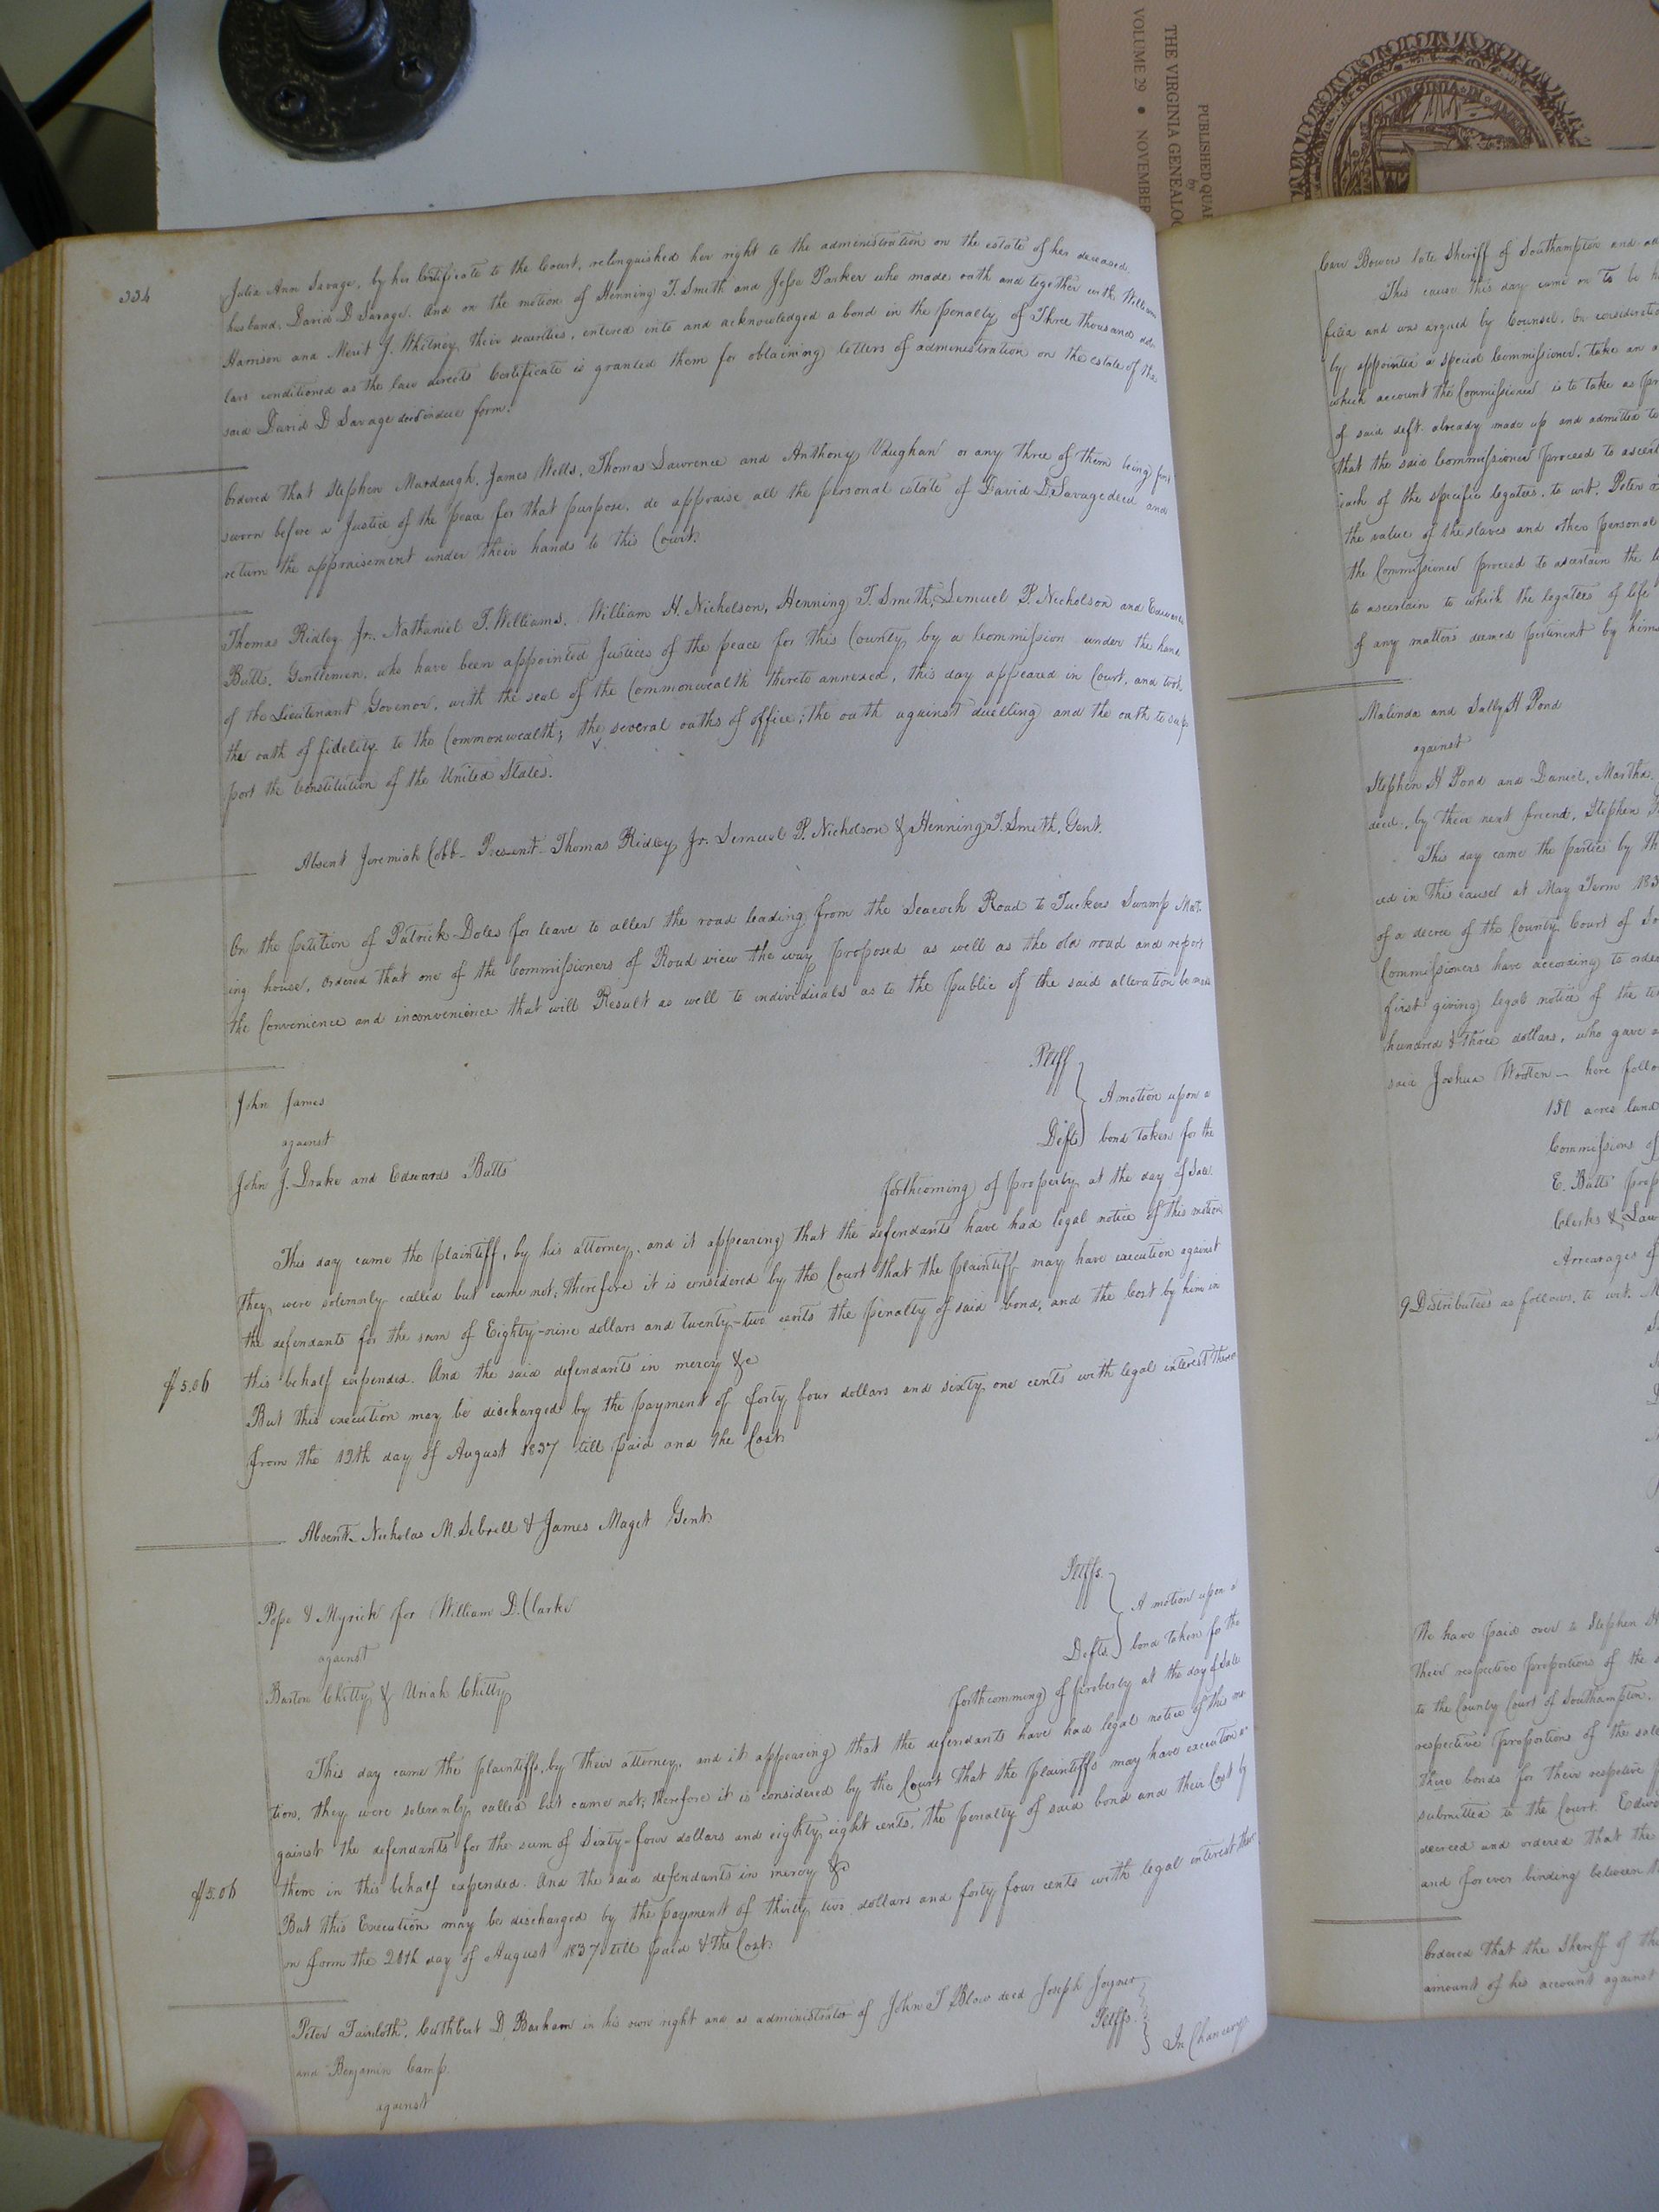 THE VIRGINIA GENEALO
VOLUME 29 • NOVEMBER
PUBLISHED QUA
by
VIRGINIA IN AMER
334
Julia Ann Savage, by her Certificate to the Court, relinquished her right to the administration on the estate of her deceased
husband, David D Savage. And on the motion of Henning T. Smith and Jesse Parker who made oath and together with William
Harrison and Merit J. Whitney their securities, entered into and acknowledged a bond in the penalty of Three thousand dol-
lars conditioned as the law directs Certificate is granted them for obtaining letters of administration on the estate of the
said David D Savage decd in due form.
Ordered that Stephen Murdaugh, James Wells, Thomas Lawrence and Anthony Vaughan or any three of them being first
sworn before a Justice of the peace for that purpose, do appraise all the personal estate of David D Savage decd and
return the appraisement under their hands to this Court.
Thomas Ridley Jr. Nathaniel T. Williams, William H. Nicholson, Henning T. Smith, Lemuel P. Nicholson and Edwards
Butts, Gentlemen, who have been appointed Justices of the peace for this County by a Commission under the hand
of the Lieutenant Govenor, with the seal of the Commonwealth thereto annexed, this day appeared in Court, and took
the oath of fidelity to the Commonwealth; the several oaths of office; the oath against duelling and the oath to sup
port the Constitution of the United States.
Absent Jeremiah Cobb - Present - Thomas Ridley Jr. Lemuel P. Nicholson & Henning T. Smith, Gent.
On the petition of Patrick Doles for leave to alter the road leading from the Seacock Road to Tuckers Swamp Met-
ing house, ordered that one of the Commissioners of Road view the way proposed as well as the old road and report
the Convenience and inconvenience that will Result as well to individuals as to the public if the said alteration be made
John James Pltff
against A motion upon a
John J. Drake and Edwards Butts Defts bond taken for the
forthcoming of property at the day of Sale
This day came the plaintiff, by his attorney, and it appearing that the defendants have had legal notice of this motion
they were solemnly called but came not; therefore it is considered by the Court that the plaintiff may have execution against
the defendants for the sum of Eighty-nine dollars and twenty-two cents the penalty of said bond, and the Cost by him in
$5.06 this behalf expended. And the said defendants in mercy &c
But this execution may be discharged by the payment of forty four dollars and sixty one cents with legal interest there
from the 19th day of August 1837 till paid and the Cost.
Absent - Nicholas M. Sebrell & James Maget Gent.
Pope & Myrick for William D. Clarke Pltffs.
against A motion upon a
Barton Chitty & Uriah Chitty Defts bond taken for the
forthcomming of property at the day of Sale
This day came the plaintiffs, by their attorney, and it appearing that the defendants have had legal notice of this mo
tion, they were solemnly called but came not; therefore it is considered by the Court that the plaintiffs may have execution a
gainst the defendants for the sum of Sixty-four dollars and eighty eight cents, the penalty of said bond and their Cost by
$5.06 them in this behalf expended. And the said defendants in mercy &c
But this Execution may be discharged by the payment of thirty two dollars and forty four cents with legal interest there
on form the 20th day of August 1837 till paid & the Cost.
Peter Faircloth, Cuthbert D Barham in his own right and as administrator of John T Blow decd Joseph Joyner
and Benjamin Camp. Pltffs.
against In Chancery
Carr Bowers late Sheriff of Southampton and
This cause this day came on to be
filia and was argued by Counsel. On
by appointed a special Commissioner, take an
which account the Commissioner is to take as
of said deft. already made up and admitted to
that the said Commissioner proceed to
each of the specific legatees, to wit, Peter
the value of the slaves and other personal
the Commissioner proceed to ascertain the
to ascertain to which the legatees of life
of any matters deemed pertinent by
Malinda and Sally H Pond
against
Stephen H Pond and Daniel, Martha,
decd, by their next friend, Stephen
This day came the parties by
ed in this cause at May Term 183
of a decree of the County Court of
Commissioners have according to
first giving legal notice of the
hundred & three dollars, who gave
said Joshua Wootten - here
150 acres land
Commissions of
E. Butts
Clerks &
Arrearages of
9 Distributees as follows, to wit,
We have paid over to Stephen
their respective proportions of the
to the County Court of Southampton,
respective proportions of the
these bonds for their respective
submitted to the Court.
decreed and ordered that the
and forever binding between
Ordered that the Sheriff of
amount of his account against